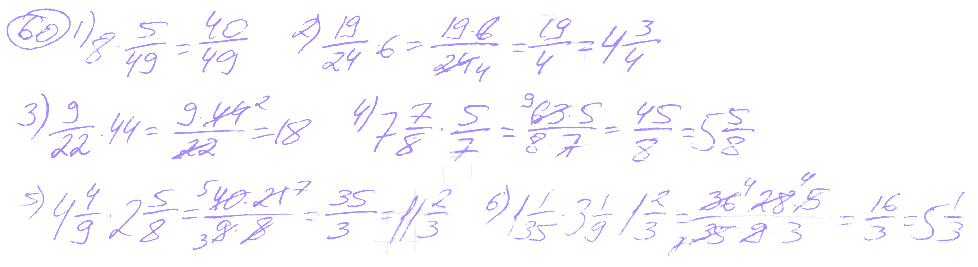 60 1) 8 · 5/49 = 40/49 2) 19/24 · 6 = 19·6/24 4 = 19/4 = 4 3/4
3) 9/22 · 44 = 9·44 2/22 = 18 4) 7 7/8 · 5/7 = 9 63·5/8·7 = 45/8 = 5 5/8
5) 4 4/9 · 2 5/8 = 5 40·21 7/3 9·8 = 35/3 = 11 2/3 6) 1 1/35 · 3 1/9 · 1 2/3 = 36 4 · 28 4 · 5/7 35·9·3 = 16/3 = 5 1/3